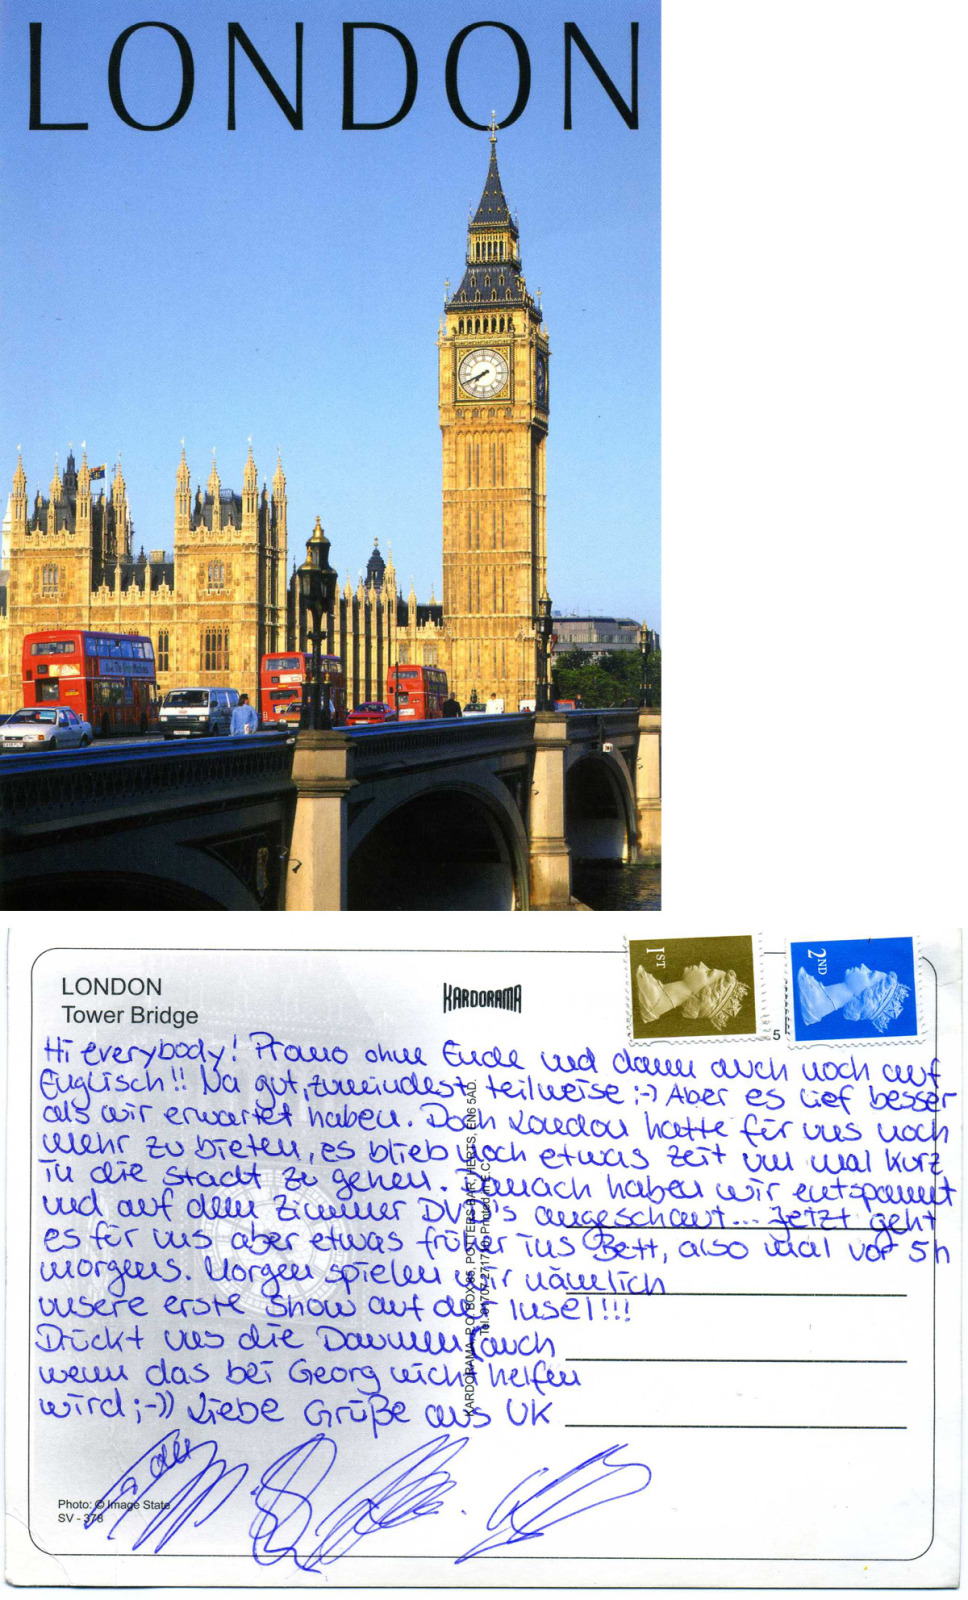 LONDON
LONDON
Tower Bridge
KARDORAMA
1ST
2ND
5
Hi everybody! Promo ohne Ende und dann auch noch auf
Englisch!! Na gut, zumindest teilweise ;-) Aber es lief besser
als wir erwartet haben. Doch London hatte für uns noch
mehr zu bieten, es blieb noch etwas Zeit um mal kurz
in die Stadt zu gehen. Danach haben wir entspannt
und auf dem Zimmer DVD's angeschaut... Jetzt geht
es für uns aber etwas früher ins Bett, also mal vor 5h
morgens. Morgen spielen wir nämlich
unsere erste Show auf der Insel!!!
Drückt uns die Daumen (auch
wenn das bei Georg nicht helfen
wird ;-)) Liebe Grüße aus UK
KARDORAMA, P.O. BOX 85, POTTERS BAR, HERTS, EN6 5AD.
Tel. 01707 271710 Printed in E.C.
Photo: © Image State
SV - 378